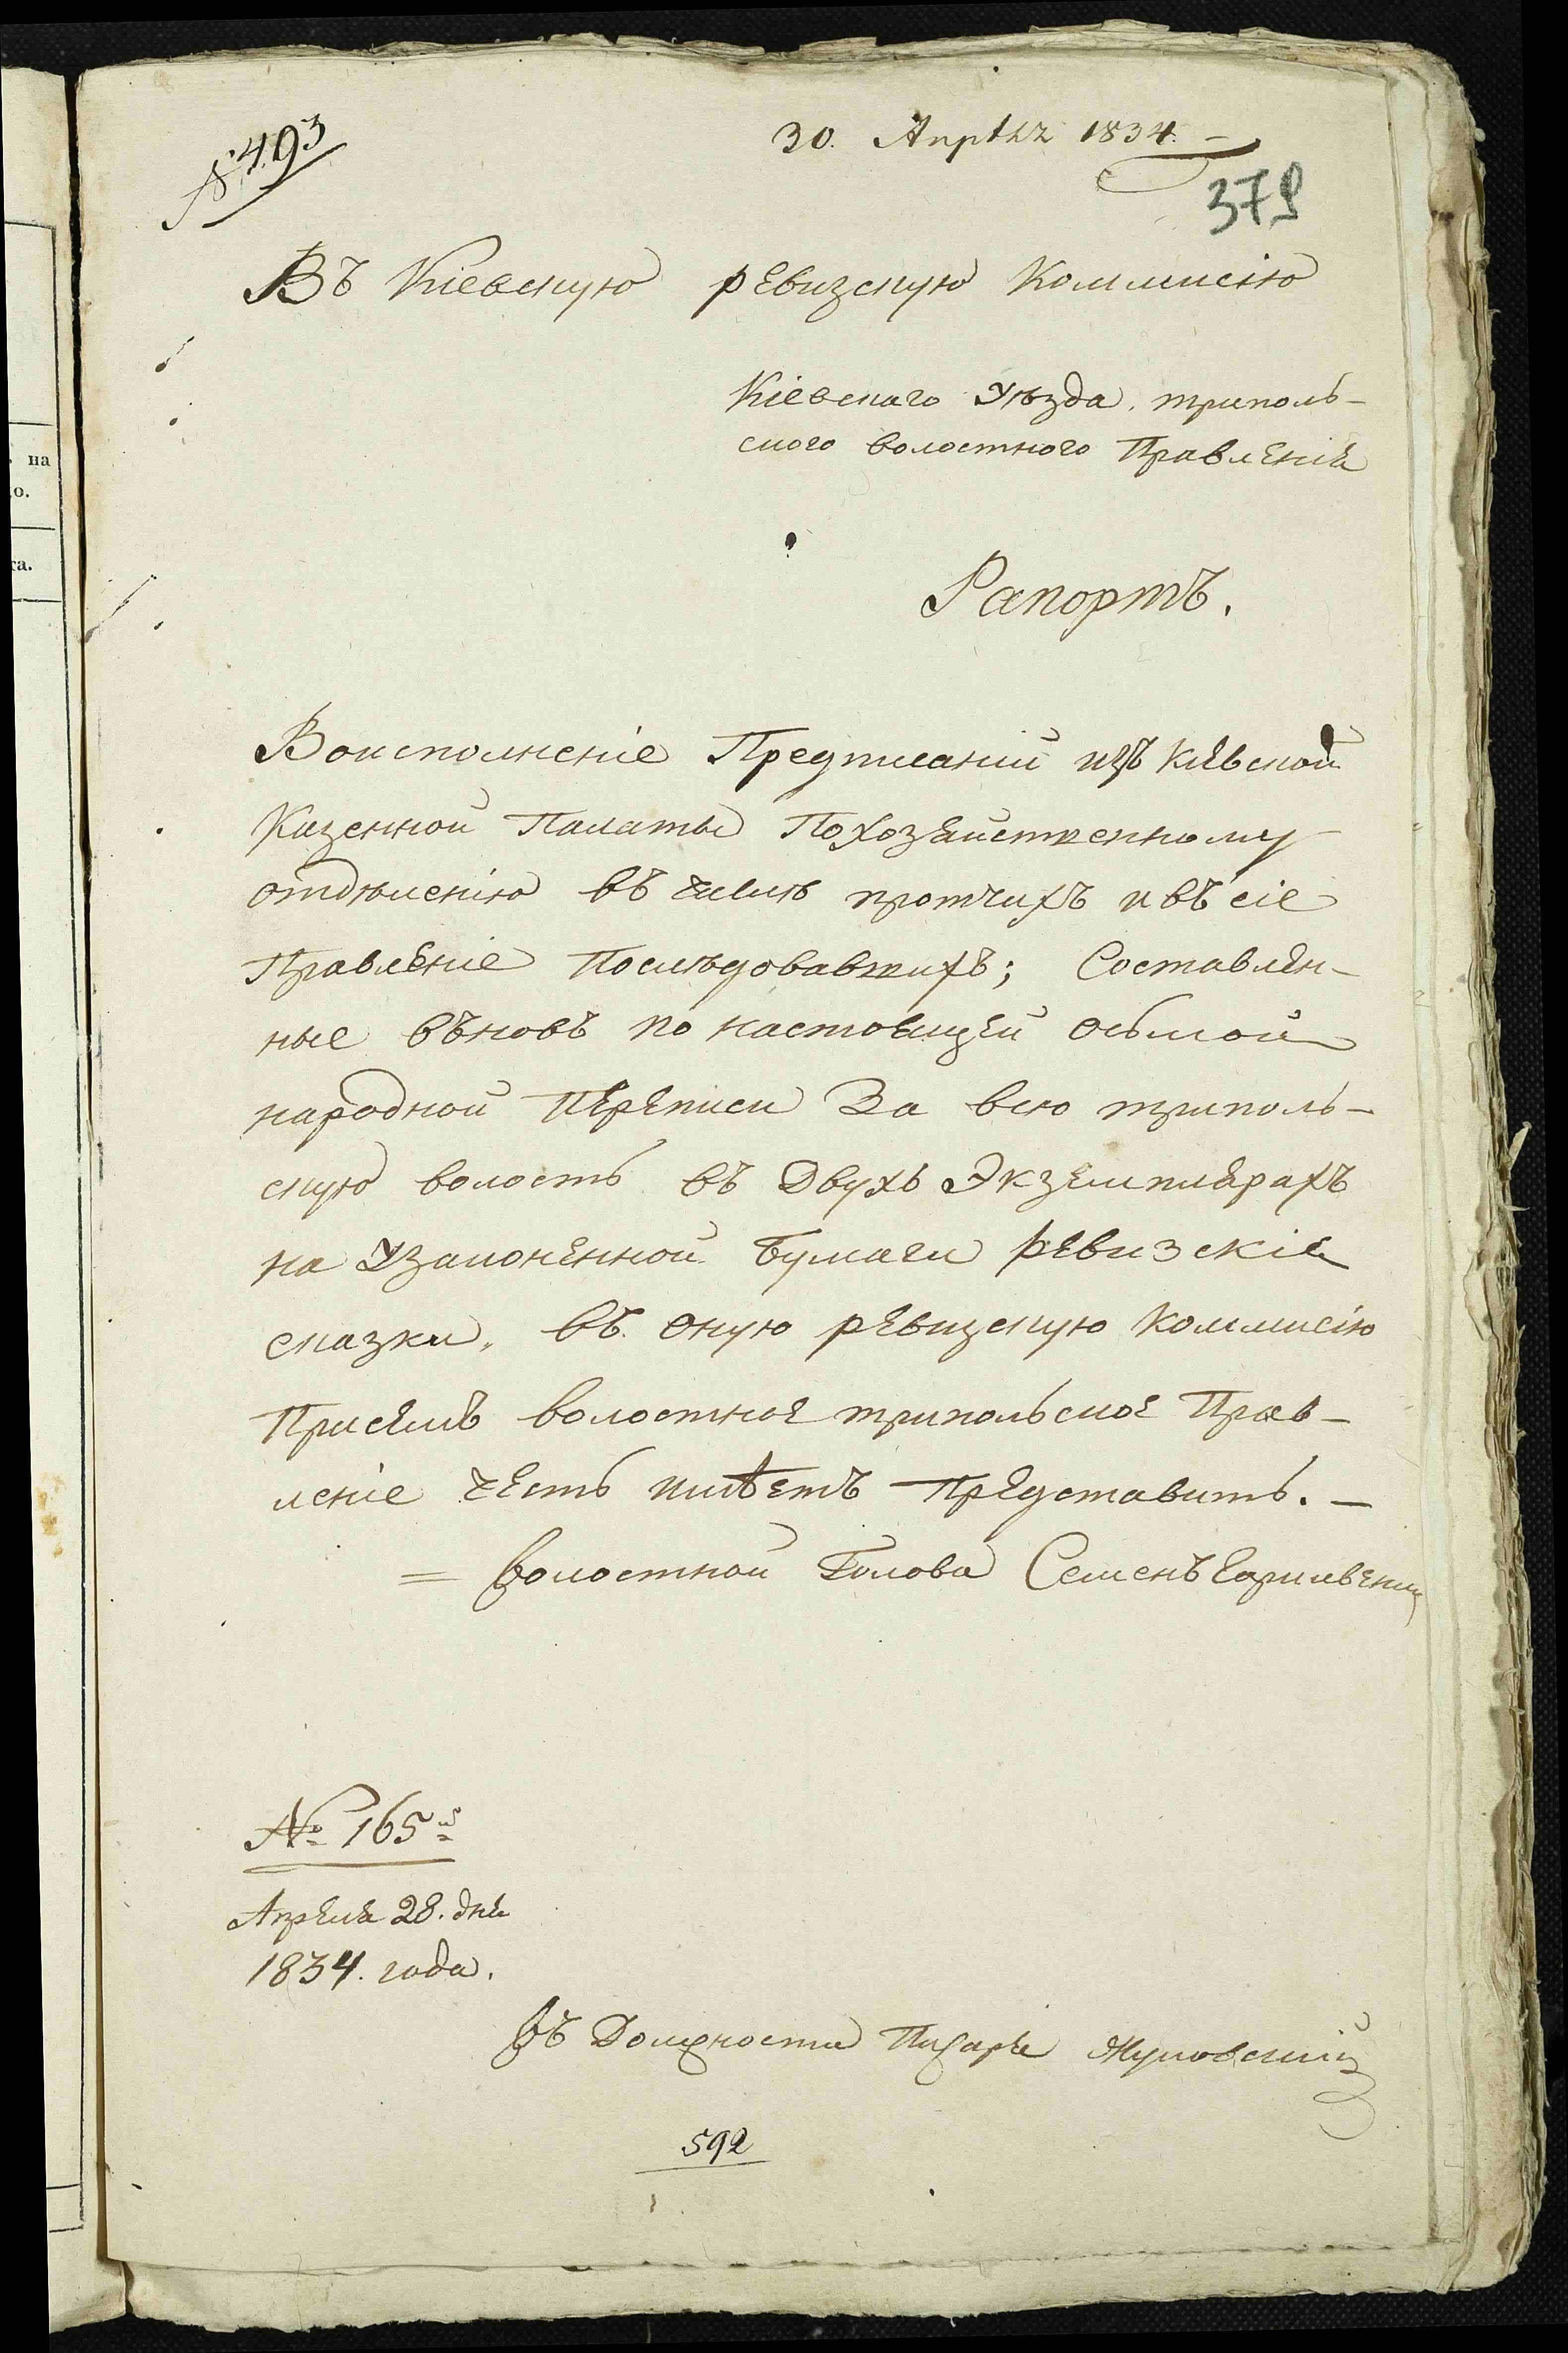 № 493
30. Апрѣля 1834. –
379
Въ Кіевскую ревизскую Коммисію
Кіевскаго Уѣзда, триполь-
ского волостного Правленія
Рапортъ.
Воисполненіе Предписаній изъ Кіевской
Казенной Палаты Похозяйственному
отдѣленію въ числѣ протчихъ ивъ сіе
Правленіе Послѣдовавшихъ; Составлен-
ные вѣновъ по настоящей осьмой
народной переписи За всю триполь-
скую волость въ Двухъ Экземплярахъ
на узаконенной бумаги ревизскія
сказки, въ оную ревизскую Коммисію
Присемъ волостное трипольское Прав-
леніе честь имѣетъ Представить. –
= волостной Голова Семенъ
№ 165
Апреля 28. дня
1834. года.
въ Должности Писаря
592
на
о.
та.